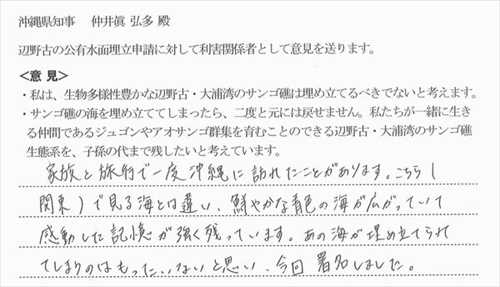 沖縄県知事　仲井眞 弘多 殿
辺野古の公有水面埋立申請に対して利害関係者として意見を送ります。
＜意 見＞
・私は、生物多様性豊かな辺野古・大浦湾のサンゴ礁は埋め立てるべきでないと考えます。
・サンゴ礁の海を埋め立ててしまったら、二度と元には戻せません。私たちが一緒に生き
る仲間であるジュゴンやアオサンゴ群集を育むことのできる辺野古・大浦湾のサンゴ礁
生態系を、子孫の代まで残したいと考えています。
家族と旅行で一度沖縄に訪れたことがあります。こちら（
関東）で見る海とは違い、鮮やかな青色の海が広がっていて
感動した記憶が強く残っています。あの海が埋め立てられ
てしまうのはもったいないと思い、今回署名しました。